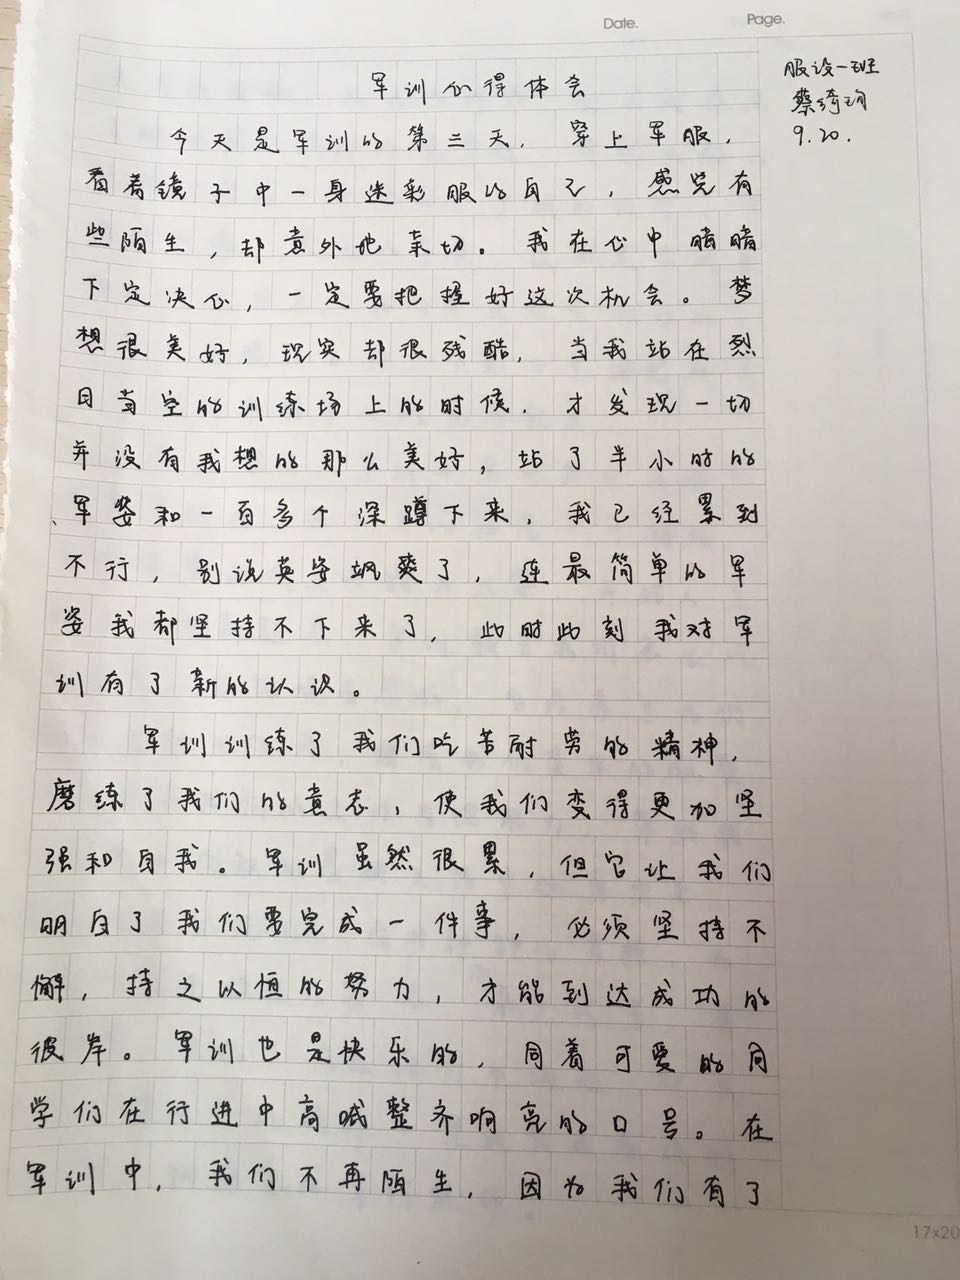 Date.
Page.
服设一班
蔡绮玥
9.20.
军训心得体会
今天是军训的第三天，穿上军服，
看着镜子中一身迷彩服的自己，感觉有
些陌生，却意外地亲切。我在心中暗暗
下定决心，一定要把握好这次机会。梦
想很美好，现实却很残酷，当我站在烈
日当空的训练场上的时候，才发现一切
并没有我想的那么美好，站了半小时的
军姿和一百多个深蹲下来，我已经累到
不行，别说英姿飒爽了，连最简单的军
姿我都坚持不下来了，此时此刻我对军
训有了新的认识。
军训训练了我们吃苦耐劳的精神，
磨练了我们的意志，使我们变得更加坚
强和自我。军训虽然很累，但它让我们
明白了我们要完成一件事，必须坚持不
懈，持之以恒的努力，才能到达成功的
彼岸。军训也是快乐的，同着可爱的同
学们在行进中高喊整齐响亮的口号。在
军训中，我们不再陌生，因为我们有了
17x20